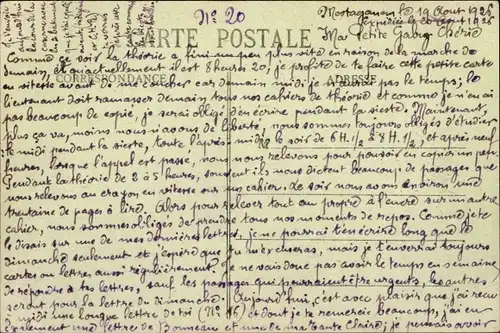 N° 20
Mostaganem, le 19 Août 1925
Expédiée le 20 août 1925
CARTE POSTALE
Ma Petite Gaby Chérie
CORRESPONDANCE
ADRESSE
Comme ce soir la théorie a fini un peu plus vite en raison de la marche de
demain, et qu'actuellement il est 8 heures 20, je profite de te faire cette petite carte
en vitesse avant de me coucher car demain midi je n'aurais pas le temps; le
lieutenant doit ramasser demain tous nos cahiers de théorie et comme je n'en ai
pas beaucoup de copié, je serai obligé d'en écrire pendant la sieste. Maintenant,
plus ça va, moins nous avons de liberté, nous sommes toujours obligés d'étudier
le midi pendant la sieste, toute l'après-midi et le soir de 6H.1/2 à 8H.1/2, et après neuf
heures, lorsque l'appel est passé, nous nous relevons pour pouvoir en copier un peu.
Pendant la théorie de 2 à 5 heures, ils nous dictent beaucoup de passages que
nous relevons au crayon en vitesse sur un cahier. Le soir nous avons environ une
trentaine de pages à lire. Alors pour relever tout au propre à l'encre sur un autre
cahier, nous sommes obligés de prendre tous nos moments de repos. Comme je te
le disais sur une de mes dernières lettres, je ne pourrai t'en écrire long que le
dimanche seulement et j'espère que tu m'excuseras, mais je t'enverrai toujours
cartes ou lettres aussi régulièrement. Je ne vais donc pas avoir le temps en semaine
de répondre à tes lettres, sauf les passages qui pourraient être urgents, les autres
seront pour la lettre du dimanche. Aujourd'hui, c'est avec plaisir que j'ai reçu
à midi une longue lettre de toi (N° 16)
également une lettre de Bonneau et une de ma Tante Claire; je pensais avoir